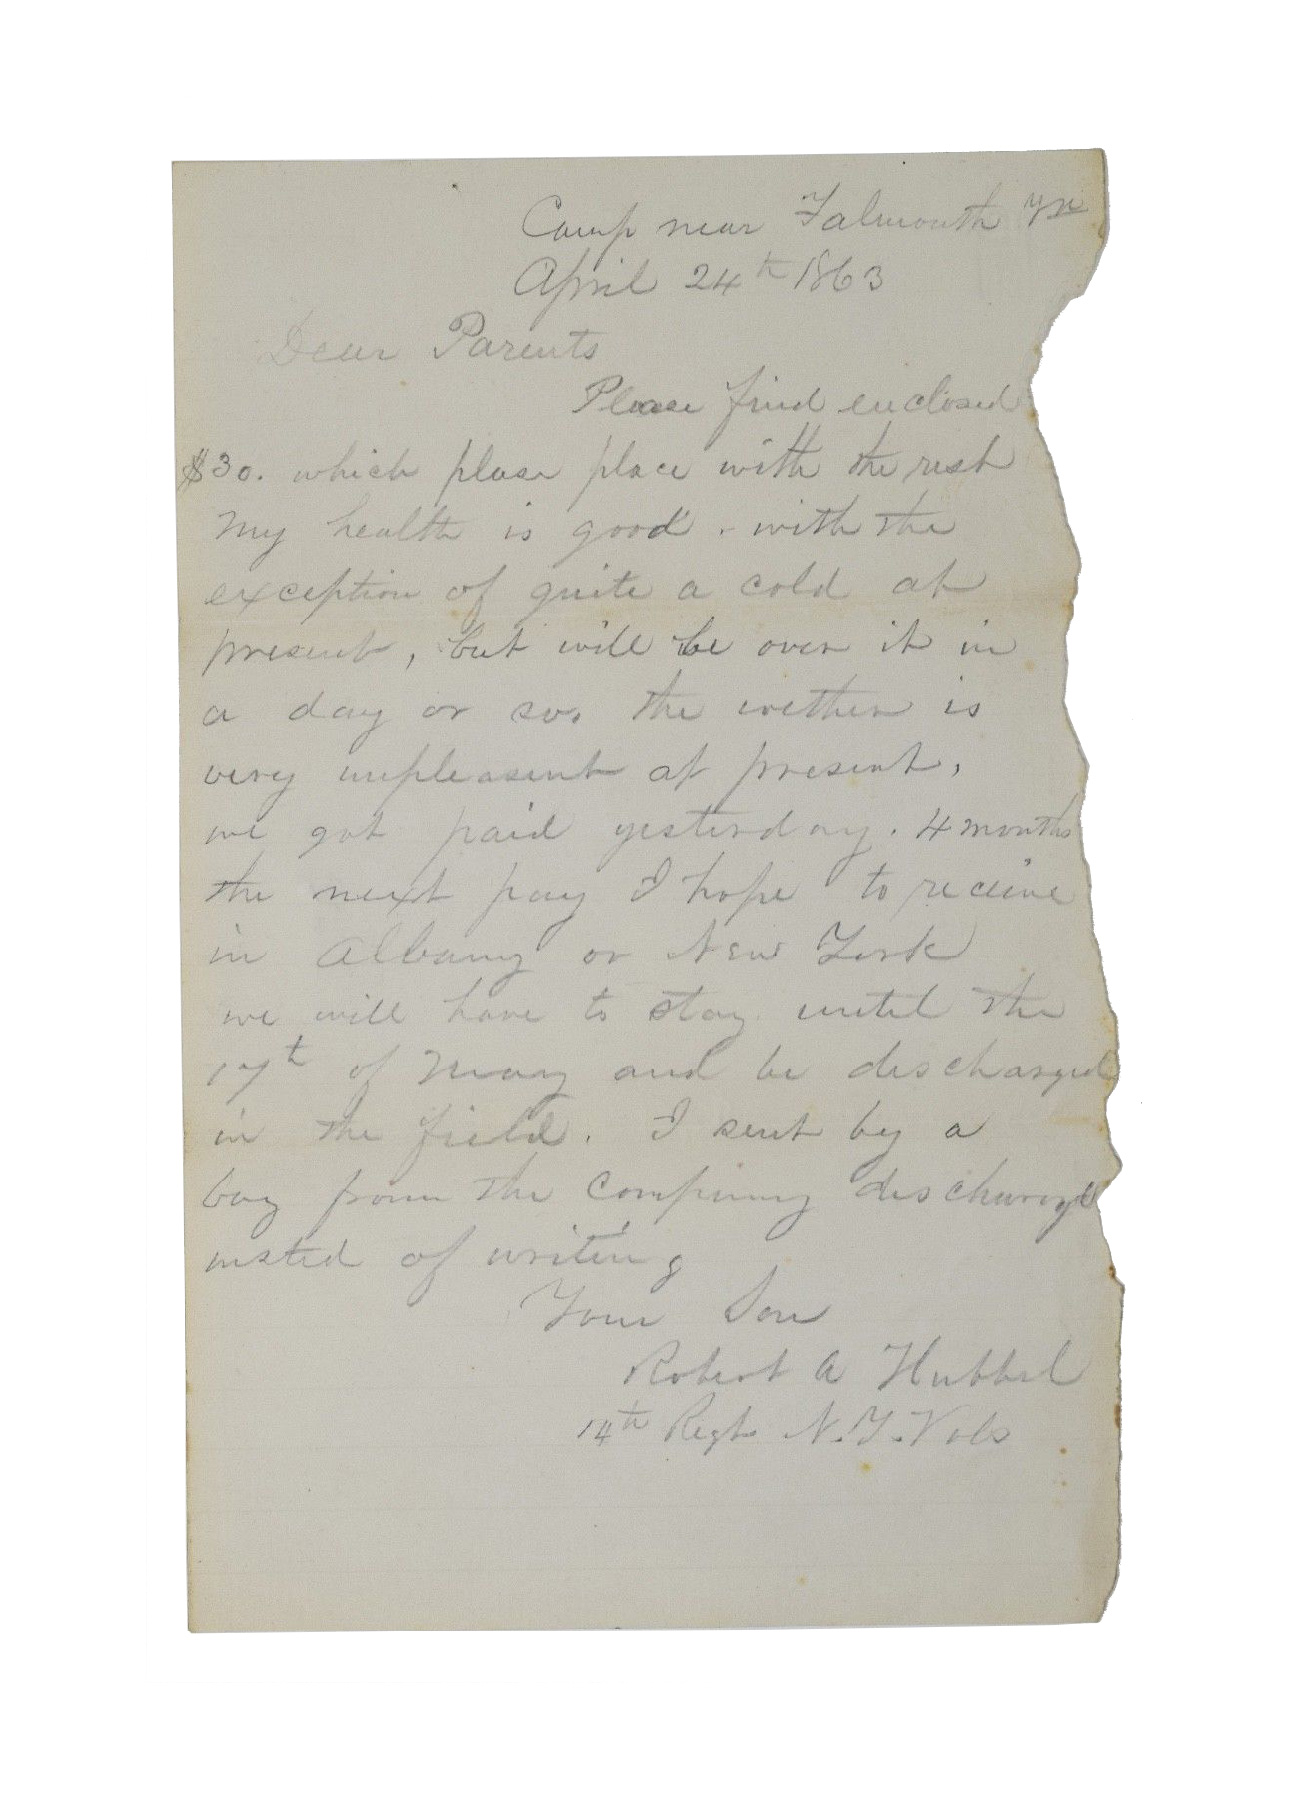 Camp near Falmouth Va
April 24th 1863
Dear Parents
Please find enclosed
$30. which pleas place with the rest
My health is good. with the
exception of quite a cold at
present, but will be over it in
a day or so. the wether is
very unpleasent at present,
we got paid yesterday. 4 months
the next pay I hope to receive
in Albany or New York
we will have to stay until the
17th of May and be discharged
in the field. I sent by a
boy from the company discharged
insted of writing
Your Son
Robert A Hubbel
14th Regt N.Y. Vols